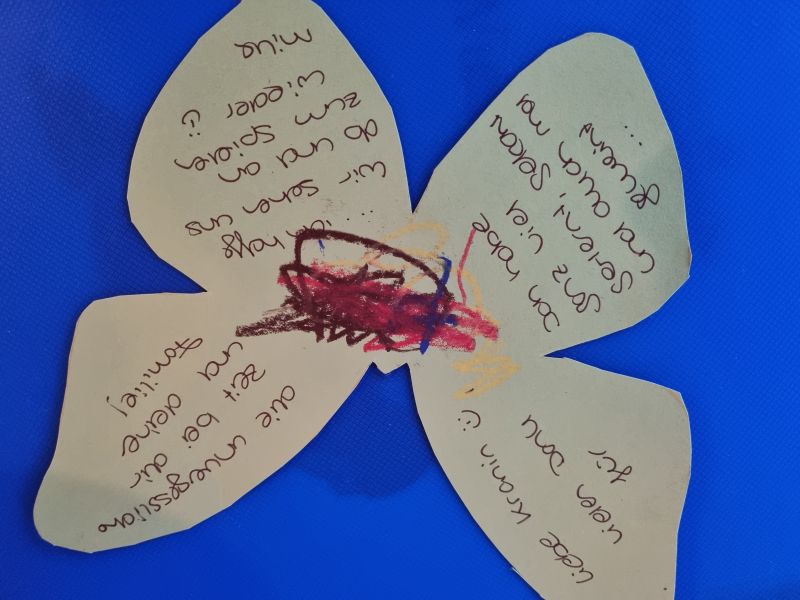 Liebe ☺
vielen Dank
für
die unvergessliche
Zeit bei dir
und deine
Familie!
Ich habe
ganz viel
gelernt, gelacht
und auch mal
geweint
...
... ich hoffe
wir sehen uns
ab und an
zum spielen
wieder ☺